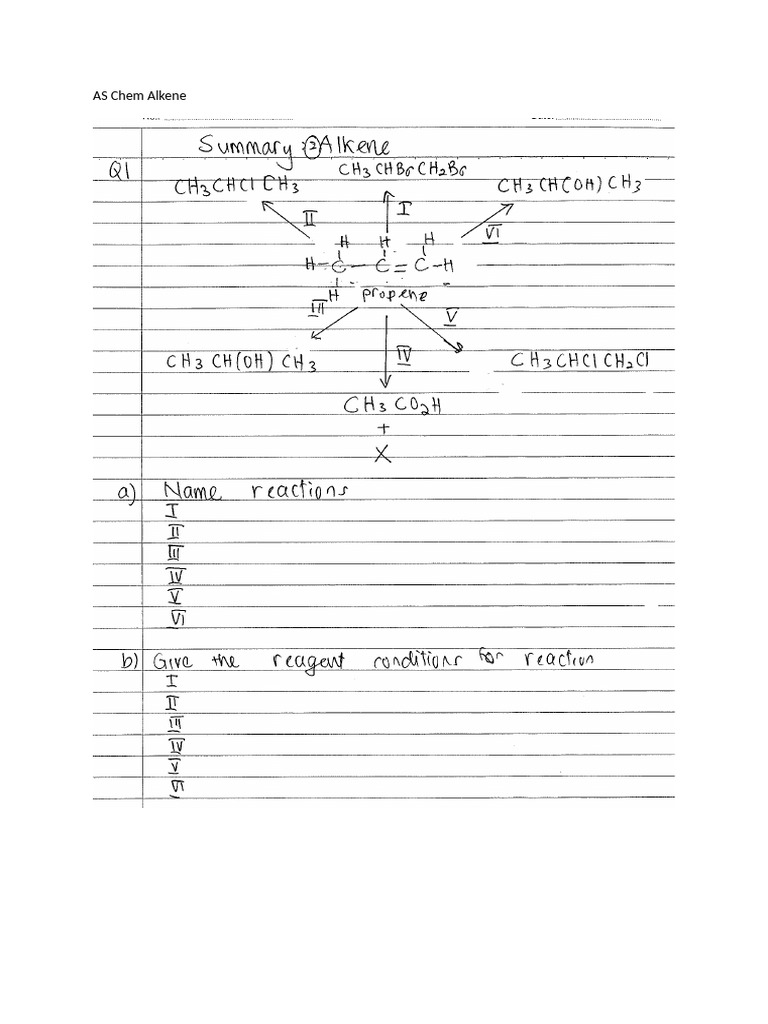 AS Chem Alkene
Summary ② Alkene
Q1
CH3CHBrCH2Br
CH3CHClCH3
CH3CH(OH)CH3
I
II
VI
H H H
H-C-C=C-H
H propene
III
V
IV
CH3CH(OH)CH3
CH3CHClCH2Cl
CH3CO2H
+
X
a) Name reactions
I
II
III
IV
V
VI
b) Give the reagent conditions for reaction
I
II
III
IV
V
VI